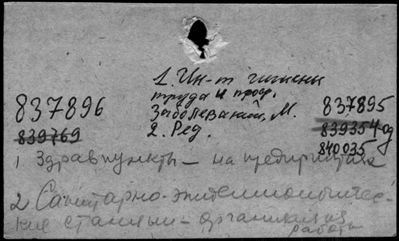 1. Ин-т гигиены
труда и проф.
837896 заболеваний, М. 837895
839769 2. Ред. 839354 од
840035
1 Здравпункты – на предприятиях
2 Санитарно-эпидемиологичес-
кие станции – организация
работы